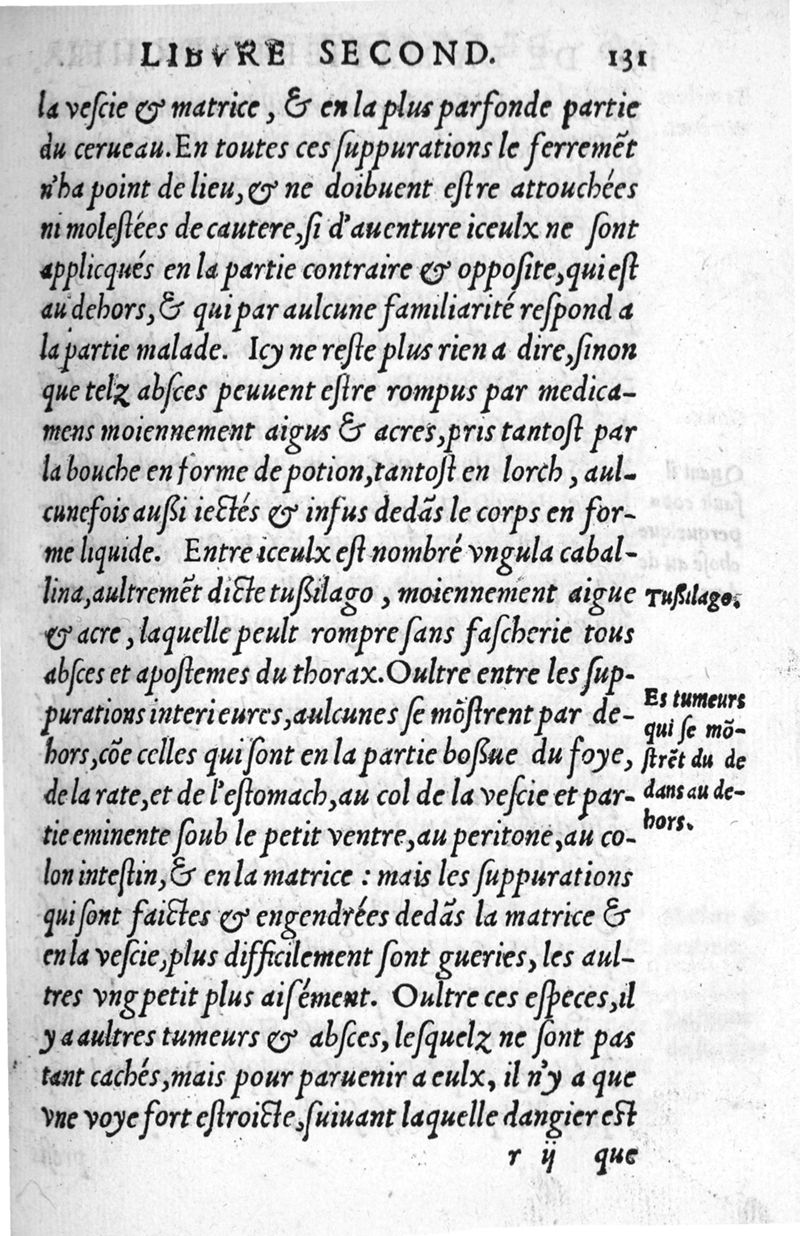 LIBVRE SECOND. 131
la veſcie & matrice, & en la plus parfonde partie
du cerueau. En toutes ces ſuppurations le ferremẽt
n'ha point de lieu, & ne doibuent eſtre attouchées
ni moleſtées de cautere, ſi d'auenture iceulx ne ſont
applicqués en la partie contraire & oppoſite, qui eſt
au dehors, & qui par aulcune familiarité reſpond a
la partie malade. Icy ne reſte plus rien a dire, ſinon
que telz abſces peuuent eſtre rompus par medica-
mens moiennement aigus & acres, pris tantoſt par
la bouche en forme de potion, tantoſt en lorch, aul-
cunefois außi iectés & infus dedãs le corps en for-
me liquide. Entre iceulx eſt nombré vngula cabal-
lina, aultremẽt dicte tußilago, moiennement aigue
& acre, laquelle peult rompre ſans faſcherie tous
abſces et apoſtemes du thorax. Oultre entre les ſup-
purations interieures, aulcunes ſe mõſtrent par de-
hors, cõe celles qui ſont en la partie boßue du foye,
de la rate, et de l'eſtomach, au col de la veſcie et par-
tie eminente ſoub le petit ventre, au peritone, au co-
lon inteſtin, & en la matrice : mais les ſuppurations
qui ſont faictes & engendrées dedãs la matrice &
en la veſcie, plus difficilement ſont gueries, les aul-
tres vng petit plus aiſément. Oultre ces eſpeces, il
y a aultres tumeurs & abſces, leſquelz ne ſont pas
tant cachés, mais pour paruenir a eulx, il n'y a que
vne voye fort eſtroicte, ſuiuant laquelle dangier eſt
r ij que
Tußilago.
Es tumeurs
qui ſe mõ-
ſtrẽt du de
dans au de-
hors.